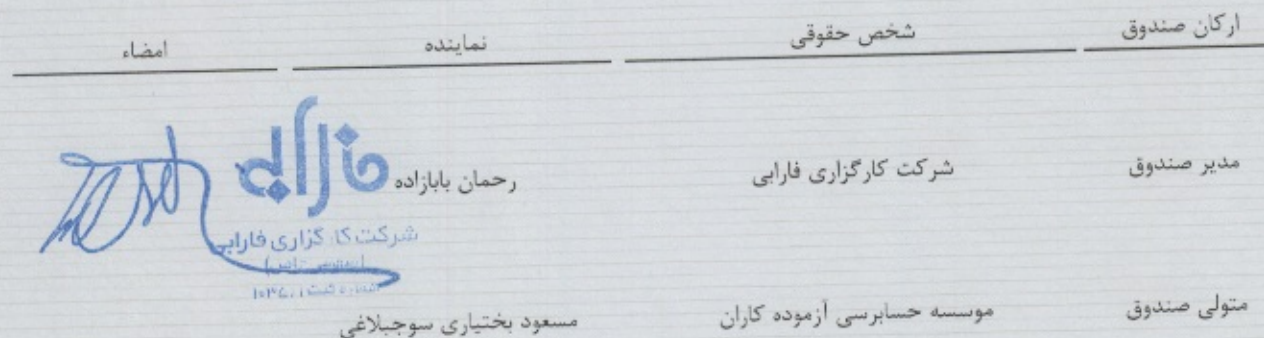 ارکان صندوق شخص حقوقی نماینده امضاء
مدیر صندوق شرکت کارگزاری فارابی رحمان بابازاده
فارابی
شرکت کارگزاری فارابی
شماره ثبت
متولی صندوق موسسه حسابرسی آزموده کاران مسعود بختیاری سوجبلاغی